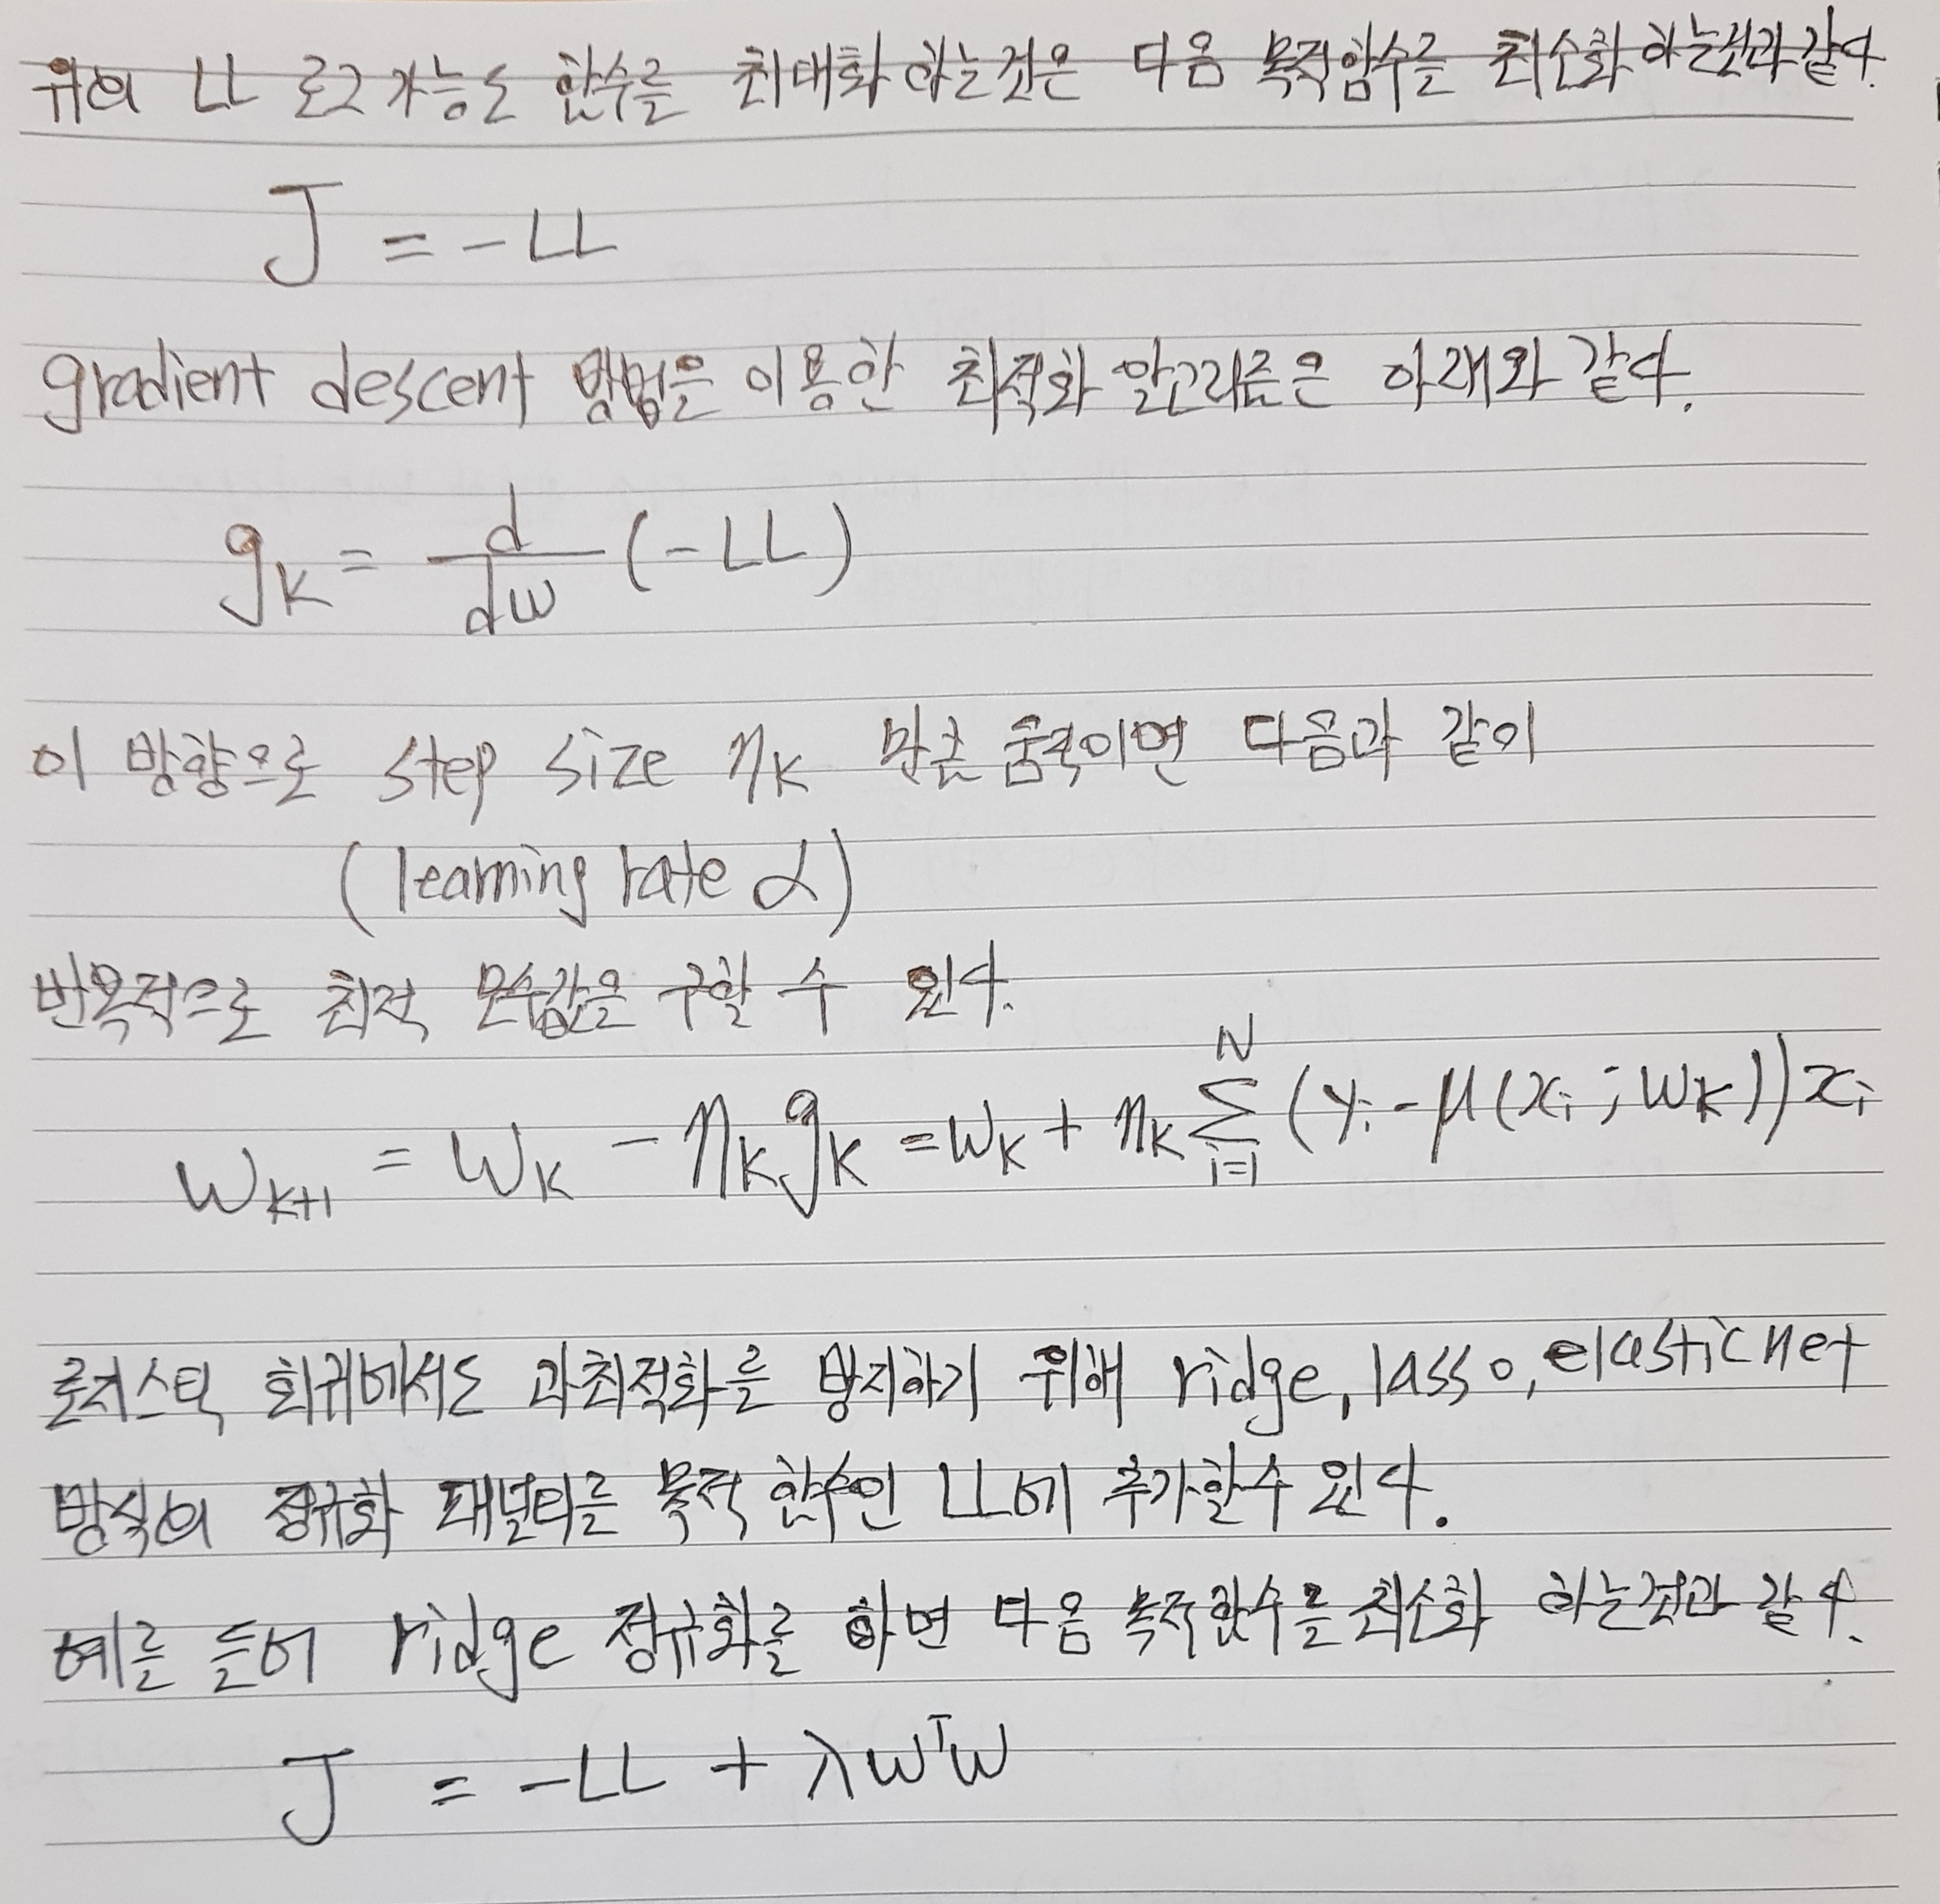 위의 LL 로그 가능도 함수를 최대화 하는것은 다음 목적함수를 최소화 하는것과 같다.
J = -LL
gradient descent 방법을 이용한 최적화 알고리즘은 아래와 같다.
g_k = d/dw (-LL)
이 방향으로 step size η_k 만큼 움직이면 다음과 같이
(learning rate α)
반복적으로 최적 모수값을 구할 수 있다.
w_{k+1} = w_k - η_k g_k = w_k + η_k \sum_{i=1}^{N} (y_i - μ(x_i ; w_k)) x_i
로지스틱 회귀에서도 과최적화를 방지하기 위해 ridge, lasso, elastic net
방식의 정규화 패널티를 목적 함수인 LL에 추가할수 있다.
예를 들어 ridge 정규화를 하면 다음 목적함수를 최소화 하는것과 같다.
J = -LL + λw^Tw